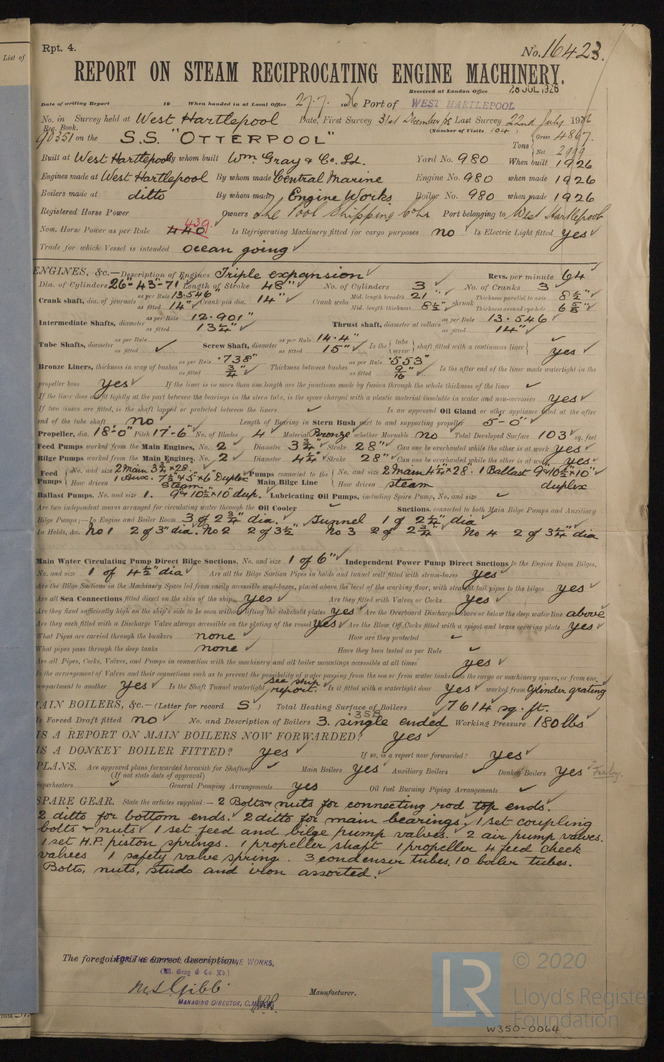 List of
Rpt. 4.
No. 16423.
REPORT ON STEAM RECIPROCATING ENGINE MACHINERY.
Received at London Office 28 JUL 1926
Date of writing Report 19 When handed in at Local Office 27.7.1926 Port of WEST HARTLEPOOL
No. in Survey held at West Hartlepool Date, First Survey 31st December Last Survey 22nd July 1926
Reg. Book. (Number of Visits
90351 on the S.S. "OTTERPOOL" Tons Gross 4867
Net
Built at West Hartlepool By whom built Wm. Gray & Co. Ld. Yard No. 980 When built 1926
Engines made at West Hartlepool By whom made Central Marine Engine No. 980 when made 1926
Boilers made at ditto By whom made Engine Works Boiler No. 980 when made 1926
Registered Horse Power Owners The Pool Shipping Co Ld Port belonging to West Hartlepool
Nom. Horse Power as per Rule 440 439 Is Refrigerating Machinery fitted for cargo purposes no Is Electric Light fitted yes
Trade for which Vessel is intended Ocean going
ENGINES, &c.—Description of Engines Triple expansion Revs. per minute 64
Dia. of Cylinders 26"-43"-71" Length of Stroke 48" No. of Cylinders 3 No. of Cranks 3
Crank shaft, dia. of journals as per Rule 13.546 as fitted 14" Crank pin dia. 14" Crank webs Mid. length breadth 21" Mid. length thickness 8½" shrunk Thickness parallel to axis 8½" Thickness around eyehole 6⅝"
Intermediate Shafts, diameter as per Rule 12.901" as fitted 13¼" Thrust shaft, diameter at collars as per Rule 13.546 as fitted 14"
Tube Shafts, diameter as per Rule as fitted Screw Shaft, diameter as per Rule 14.4" as fitted 15" Is the tube screw shaft fitted with a continuous liner yes
Bronze Liners, thickness in way of bushes as per Rule .738" as fitted ¾" Thickness between bushes as per Rule .553" as fitted 9/16" Is the after end of the liner made watertight in the
propeller boss yes If the liner is in more than one length are the junctions made by fusion through the whole thickness of the liner
If the liner does not fit tightly at the part between the bearings in the stern tube, is the space charged with a plastic material insoluble in water and non-corrosive yes
If two liners are fitted, is the shaft lapped or protected between the liners Is an approved Oil Gland or other appliance fitted at the after
end of the tube shaft no Length of Bearing in Stern Bush next to and supporting propeller 5'-0"
Propeller, dia. 18'-0" Pitch 17'-6" No. of Blades 4 Material Bronze whether Moveable no Total Developed Surface 103 sq. feet
Feed Pumps worked from the Main Engines, No. 2 Diameter 3½" Stroke 28" Can one be overhauled while the other is at work yes
Bilge Pumps worked from the Main Engines, No. 2 Diameter 4½" Stroke 28" Can one be overhauled while the other is at work yes
Feed Pumps No. and size 2 Main 3½ x 28. 1 Aux. 7½ x 5 x 6 Duplex How driven Steam. Pumps connected to the Main Bilge Line No. and size 2 Main 4½ x 28. 1 Ballast 9 x 10½ x 10" How driven steam duplex
Ballast Pumps, No. and size 1. 9 x 10½ x 10 dup. Lubricating Oil Pumps, including Spare Pump, No. and size
Are two independent means arranged for circulating water through the Oil Cooler Suctions, connected to both Main Bilge Pumps and Auxiliary
Bilge Pumps;—In Engine and Boiler Room 3 of 2¾" dia. Tunnel 1 of 2¼" dia
In Holds, &c. No 1 2 of 3" dia. No 2 2 of 3½" No 3 2 of 2¾" No 4 2 of 3¼" dia
Main Water Circulating Pump Direct Bilge Suctions, No. and size 1 of 6" Independent Power Pump Direct Suctions to the Engine Room Bilges,
No. and size 1 of 4½" dia Are all the Bilge Suction Pipes in holds and tunnel well fitted with strum-boxes yes
Are the Bilge Suctions in the Machinery Spaces led from easily accessible mud-boxes, placed above the level of the working floor, with straight tail pipes to the bilges yes
Are all Sea Connections fitted direct on the skin of the ship yes Are they fitted with Valves or Cocks yes
Are they fixed sufficiently high on the ship's side to be seen without lifting the stokehold plates yes Are the Overboard Discharges above or below the deep water line above
Are they each fitted with a Discharge Valve always accessible on the plating of the vessel yes Are the Blow Off Cocks fitted with a spigot and brass covering plate yes
What Pipes are carried through the bunkers none How are they protected
What pipes pass through the deep tanks none Have they been tested as per Rule
Are all Pipes, Cocks, Valves, and Pumps in connection with the machinery and all boiler mountings accessible at all times yes
Is the arrangement of Valves and their connections such as to prevent the possibility of water passing from the sea or from water tanks to the cargo or machinery spaces, or from one
compartment to another yes Is the Shaft Tunnel watertight see ship report. Is it fitted with a watertight door yes worked from Cylinder grating
MAIN BOILERS, &c.—(Letter for record S) Total Heating Surface of Boilers 7614 sq. ft.
Is Forced Draft fitted no No. and Description of Boilers 3. single ended Working Pressure 180 lbs
IS A REPORT ON MAIN BOILERS NOW FORWARDED? yes
IS A DONKEY BOILER FITTED? yes If so, is a report now forwarded? yes
PLANS. Are approved plans forwarded herewith for Shafting Main Boilers yes Auxiliary Boilers Donkey Boilers yes
(If not state date of approval)
Superheaters General Pumping Arrangements yes Oil fuel Burning Piping Arrangements
SPARE GEAR. State the articles supplied:— 2 Bolts & nuts for connecting rod top ends.
2 ditto for bottom ends. 2 ditto for main bearings. 1 set coupling
bolts & nuts. 1 set feed and bilge pump valves. 2 air pump valves.
1 set H.P. piston springs. 1 propeller shaft 1 propeller 4 feed check
valves 1 safety valve spring. 3 condenser tubes. 10 boiler tubes.
Bolts, nuts, studs and iron assorted.
The foregoing is a correct description,
FOR THE CENTRAL MARINE ENGINE WORKS,
(Wm. Gray & Co. Ld.)
M S Gibb Manufacturer.
MANAGING DIRECTOR, C.M.E.W.
© 2020
LR
Lloyd's Register
Foundation
W350-0064